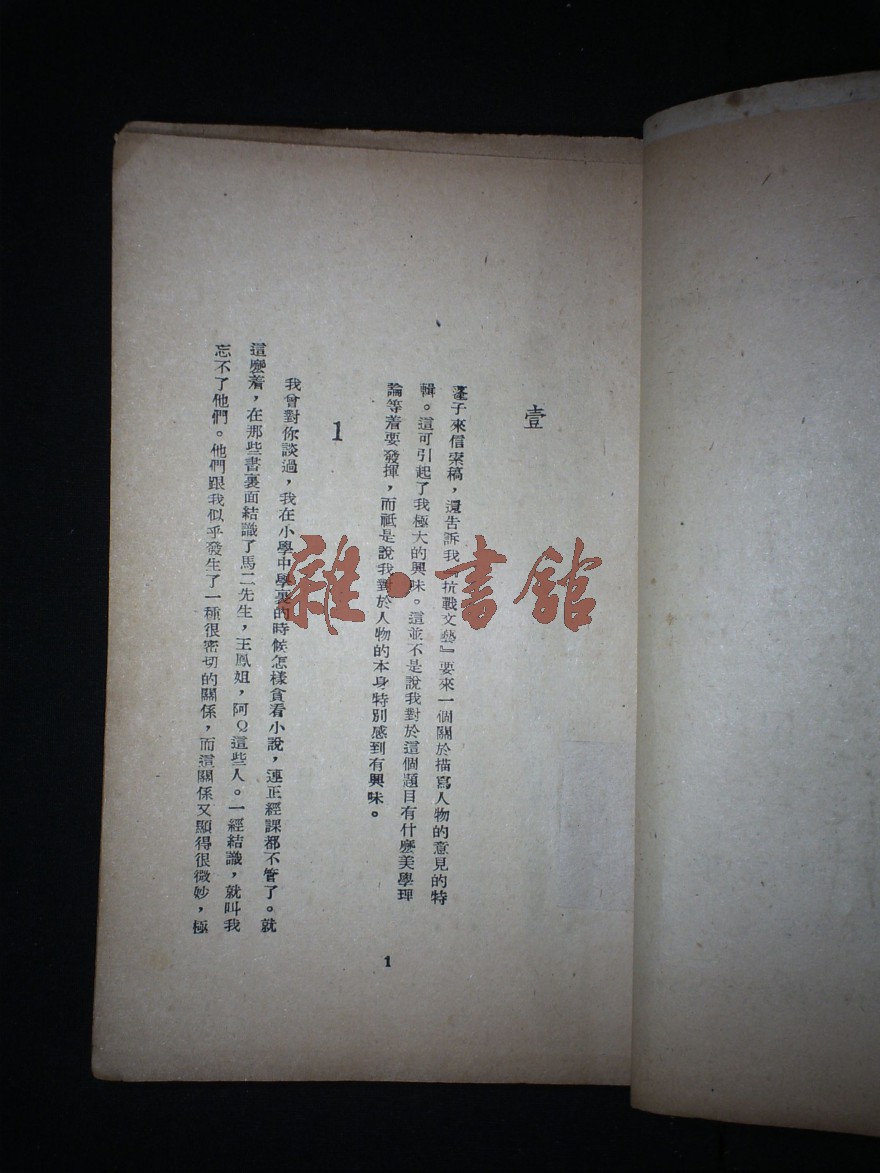 壹
蓬子來信索稿，還告訴我『抗戰文藝』要來一個關於描寫人物的意見的特
輯。這可引起了我極大的興味。這並不是說我對於這個題目有什麼美學理
論等着要發揮，而祇是說我對於人物的本身特別感到有興味。
1
我曾對你談過，我在小學中學裏的時候怎樣貪看小說，連正經課都不管了。就
這麼着，在那些書裏面結識了馬二先生，王鳳姐，阿Q這些人。一經結識，就叫我
忘不了他們。他們跟我似乎發生了一種很密切的關係，而這關係又顯得很微妙，極
1
雜·書館